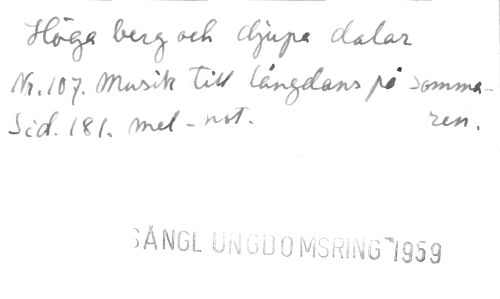 Höga berg och djupa dalar
Nr. 107. Musik till långdans på somma-
ren.
Sid. 181. mel-not.
SÅNGL UNGDOMSRING 1959